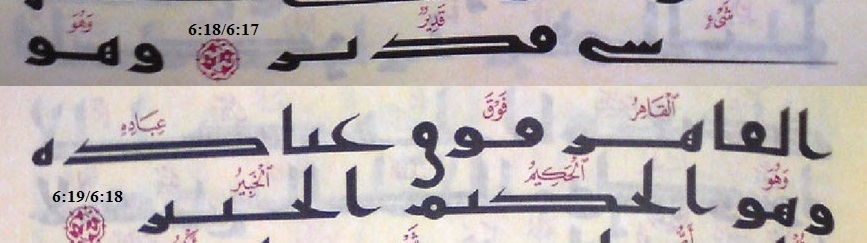 شَىْءٍ قَدِيرٌ 6:18/6:17 وَهُوَ
شى قدير وهو
ٱلْقَاهِرُ فَوْقَ عِبَادِهِ
القاهر فوق عباده
وَهُوَ ٱلْحَكِيمُ ٱلْخَبِيرُ 6:19/6:18
وهو الحكيم الخبير